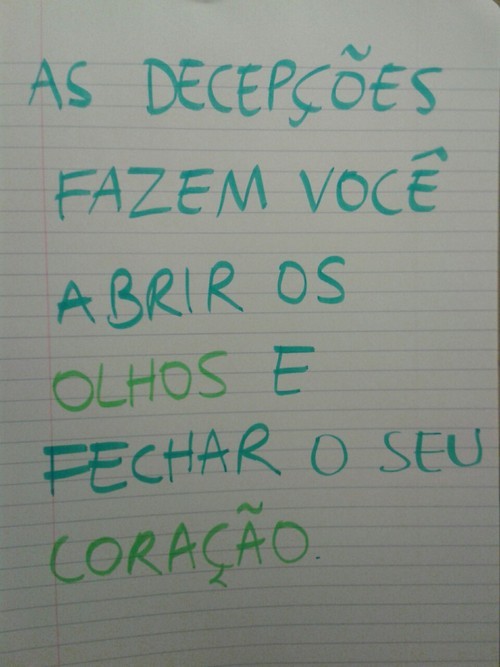 AS DECEPÇÕES
FAZEM VOCÊ
ABRIR OS
OLHOS E
FECHAR O SEU
CORAÇÃO.